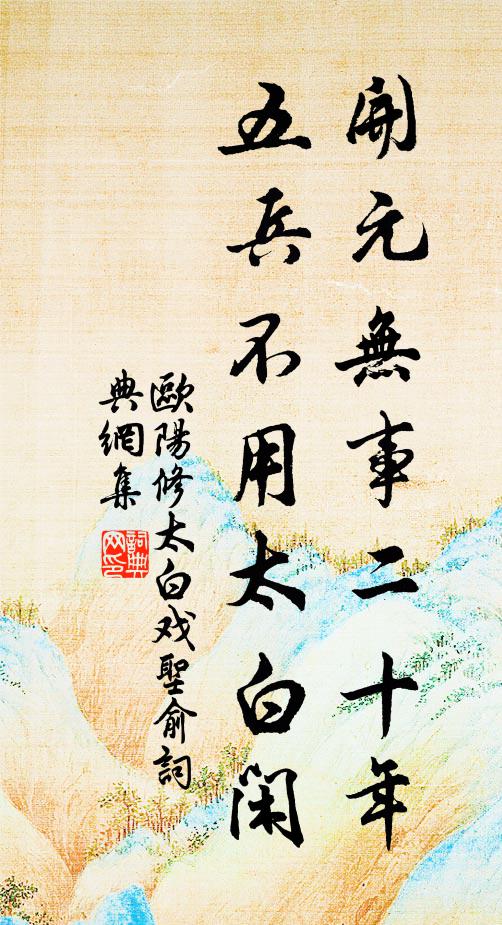 開元無事二十年
五兵不用太白閑
歐陽修太白戏聖俞詞
典網集
詞典
网印